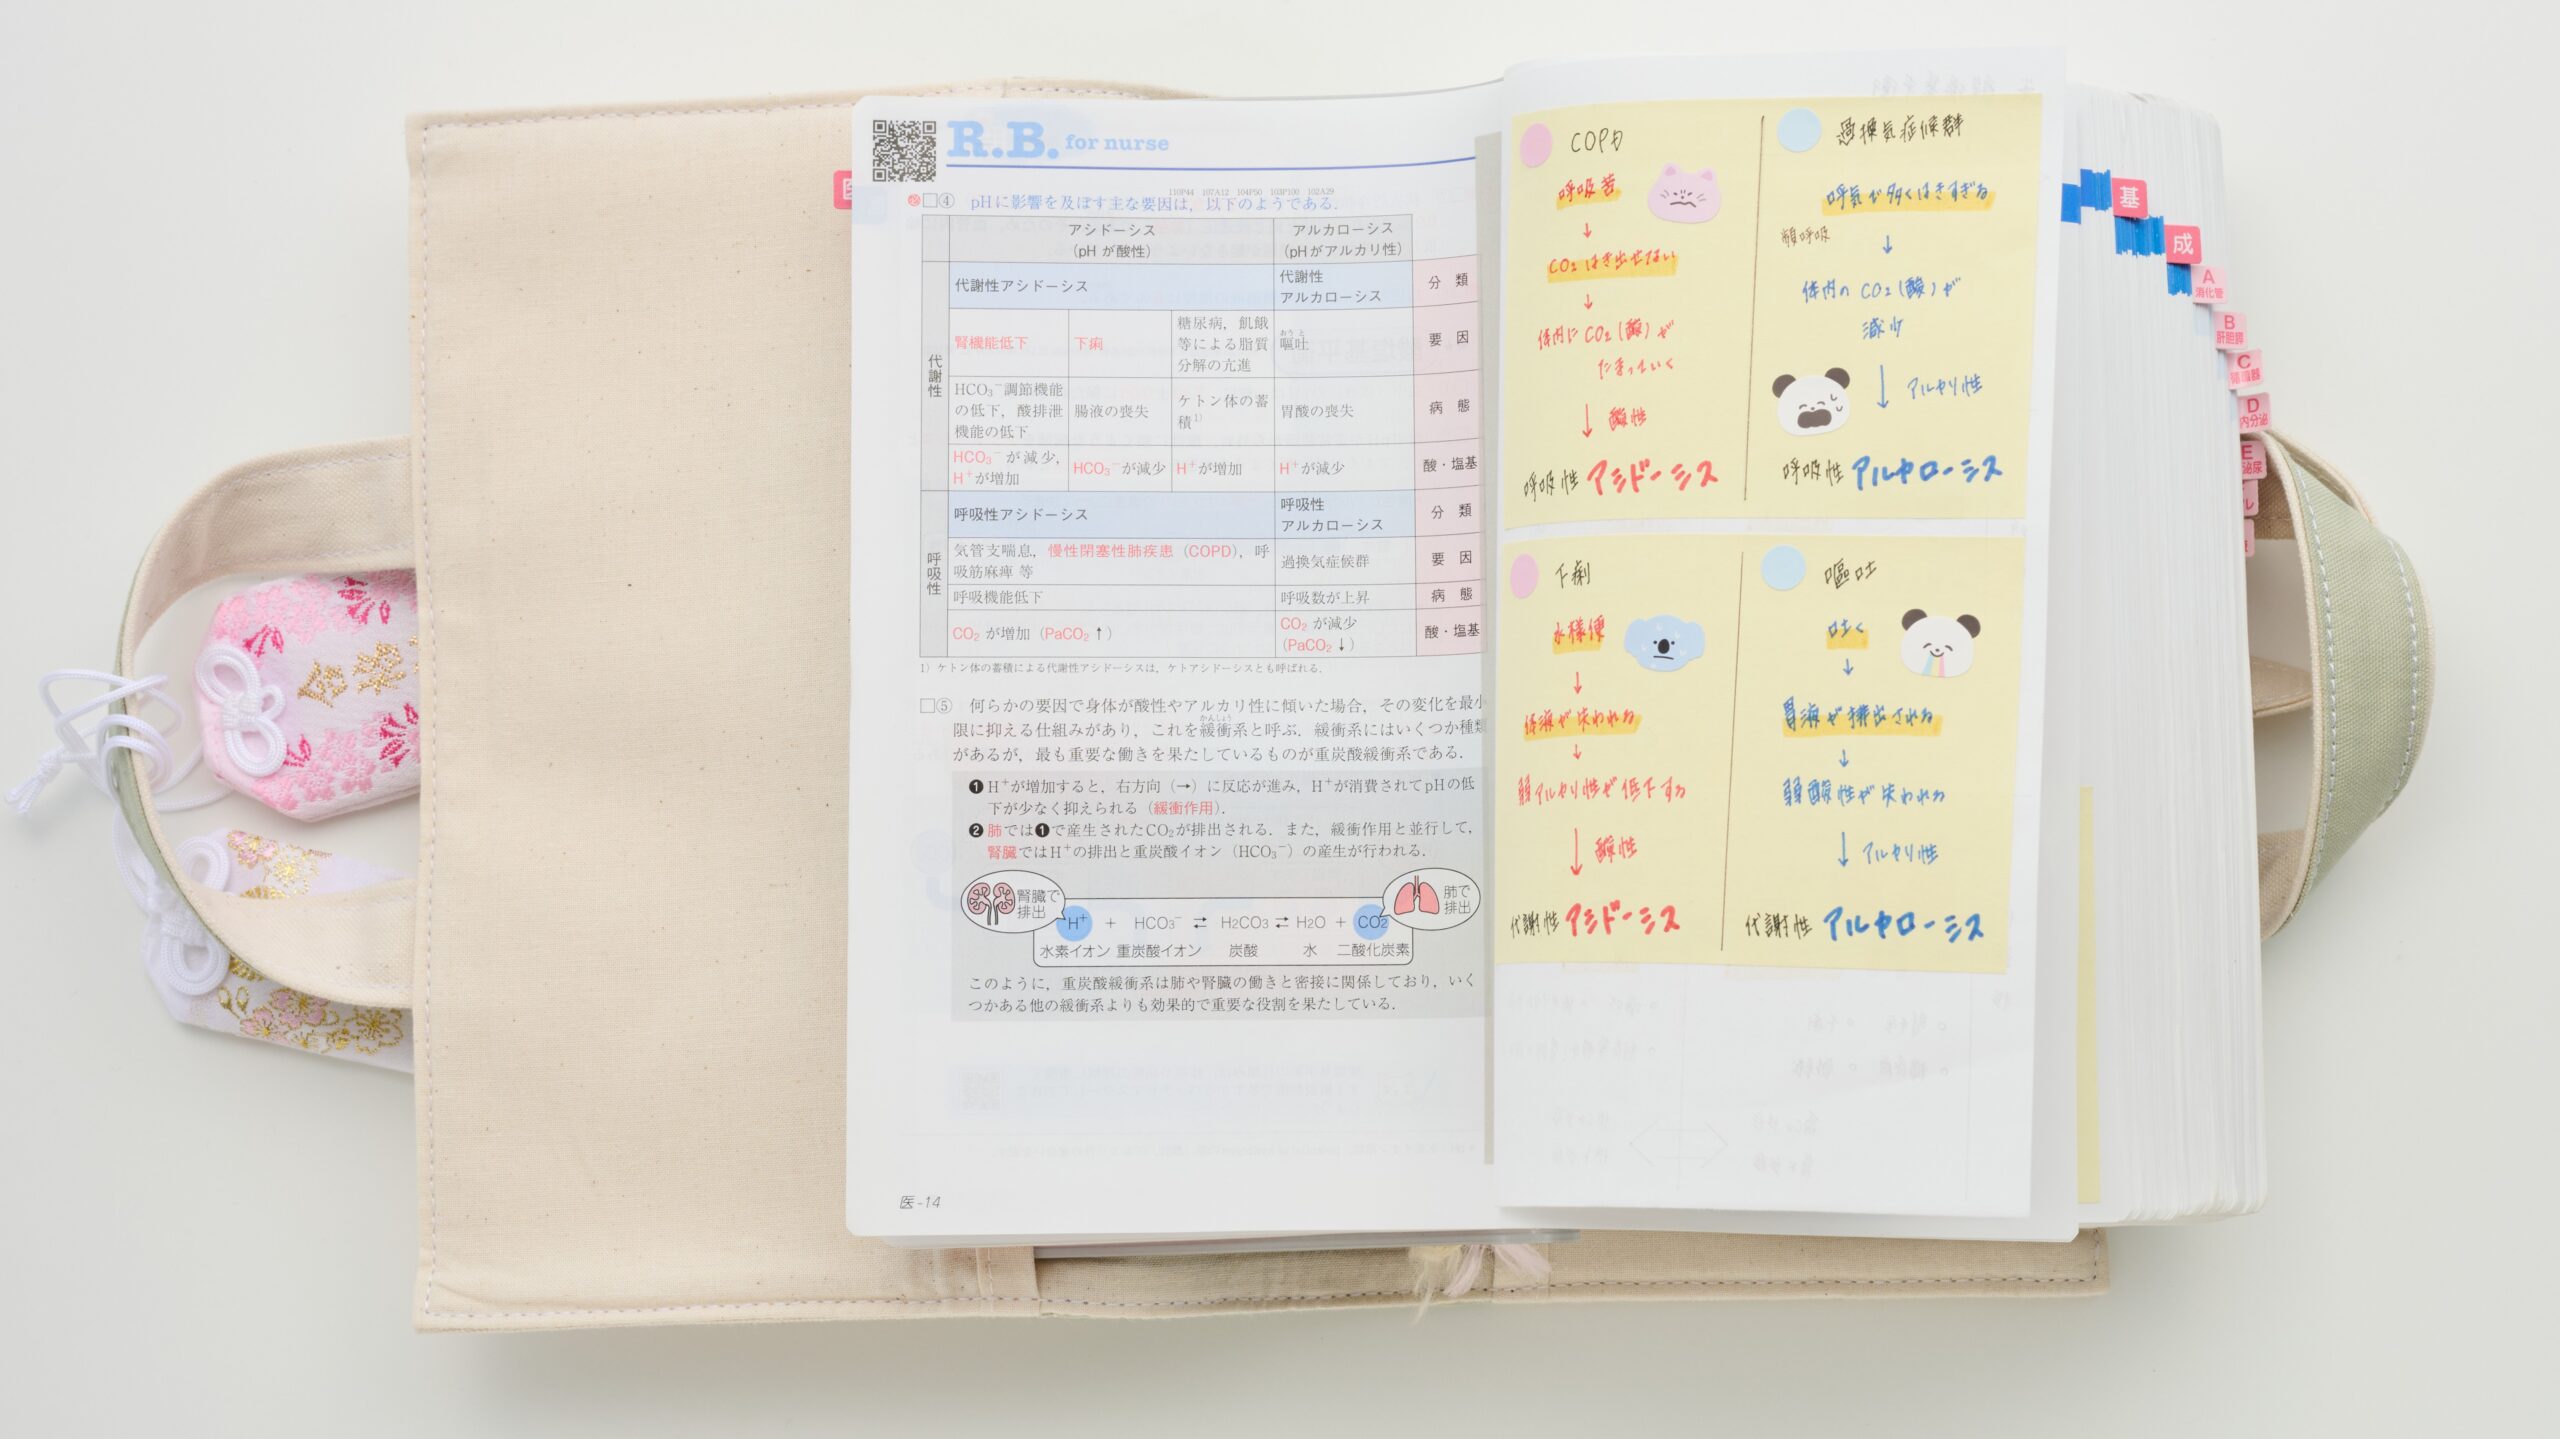 R.B. for nurse
110P44 107A12 104P50 103P100 102A29
□④ pHに影響を及ぼす主な要因は，以下のようである．
アシドーシス
（pH が酸性）
アルカローシス
（pHがアルカリ性）
代謝性
代謝性アシドーシス
代謝性
アルカローシス
分類
腎機能低下
下痢
糖尿病，飢餓
等による脂質
分解の亢進
おうと
嘔吐
要因
HCO₃⁻調節機能
の低下，酸排泄
機能の低下
腸液の喪失
ケトン体の蓄
積¹⁾
胃酸の喪失
病態
HCO₃⁻が減少，
H⁺が増加
HCO₃⁻が減少
H⁺が増加
H⁺が減少
酸・塩基
呼吸性
呼吸性アシドーシス
呼吸性
アルカローシス
分類
気管支喘息，慢性閉塞性肺疾患（COPD），呼
吸筋麻痺 等
過換気症候群
要因
呼吸機能低下
呼吸数が上昇
病態
CO₂ が増加（PaCO₂↑）
CO₂ が減少
（PaCO₂↓）
酸・塩基
1）ケトン体の蓄積による代謝性アシドーシスは，ケトアシドーシスとも呼ばれる．
□⑤ 何らかの要因で身体が酸性やアルカリ性に傾いた場合，その変化を最小
かんしょう
限に抑える仕組みがあり，これを緩衝系と呼ぶ．緩衝系にはいくつか種類
があるが，最も重要な働きを果たしているものが重炭酸緩衝系である．
❶H⁺が増加すると，右方向（→）に反応が進み，H⁺が消費されてpHの低
下が少なく抑えられる（緩衝作用）．
❷肺では❶で産生されたCO₂が排出される．また，緩衝作用と並行して，
腎臓ではH⁺の排出と重炭酸イオン（HCO₃⁻）の産生が行われる．
腎臓で
排出
肺で
排出
H⁺ + HCO₃⁻ ⇄ H₂CO₃ ⇄ H₂O + CO₂
水素イオン 重炭酸イオン 炭酸 水 二酸化炭素
このように，重炭酸緩衝系は肺や腎臓の働きと密接に関係しており，いく
つかある他の緩衝系よりも効果的で重要な役割を果たしている．
医-14
COPD
呼吸苦
↓
CO₂はき出せない
↓
体内にCO₂(酸)が
たまっていく
↓ 酸性
呼吸性 アシドーシス
過換気症候群
呼気が多くはきすぎる
頻呼吸
↓
体内のCO₂(酸)が
減少
↓ アルカリ性
呼吸性 アルカローシス
下痢
水様便
↓
体液が失われる
↓
弱アルカリ性が低下する
↓ 酸性
代謝性 アシドーシス
嘔吐
吐く
↓
胃液が排出される
↓
弱酸性が失われる
↓ アルカリ性
代謝性 アルカローシス
基
成
A
消化管
B
肝胆膵
C
循環器
D
内分泌
E
泌尿